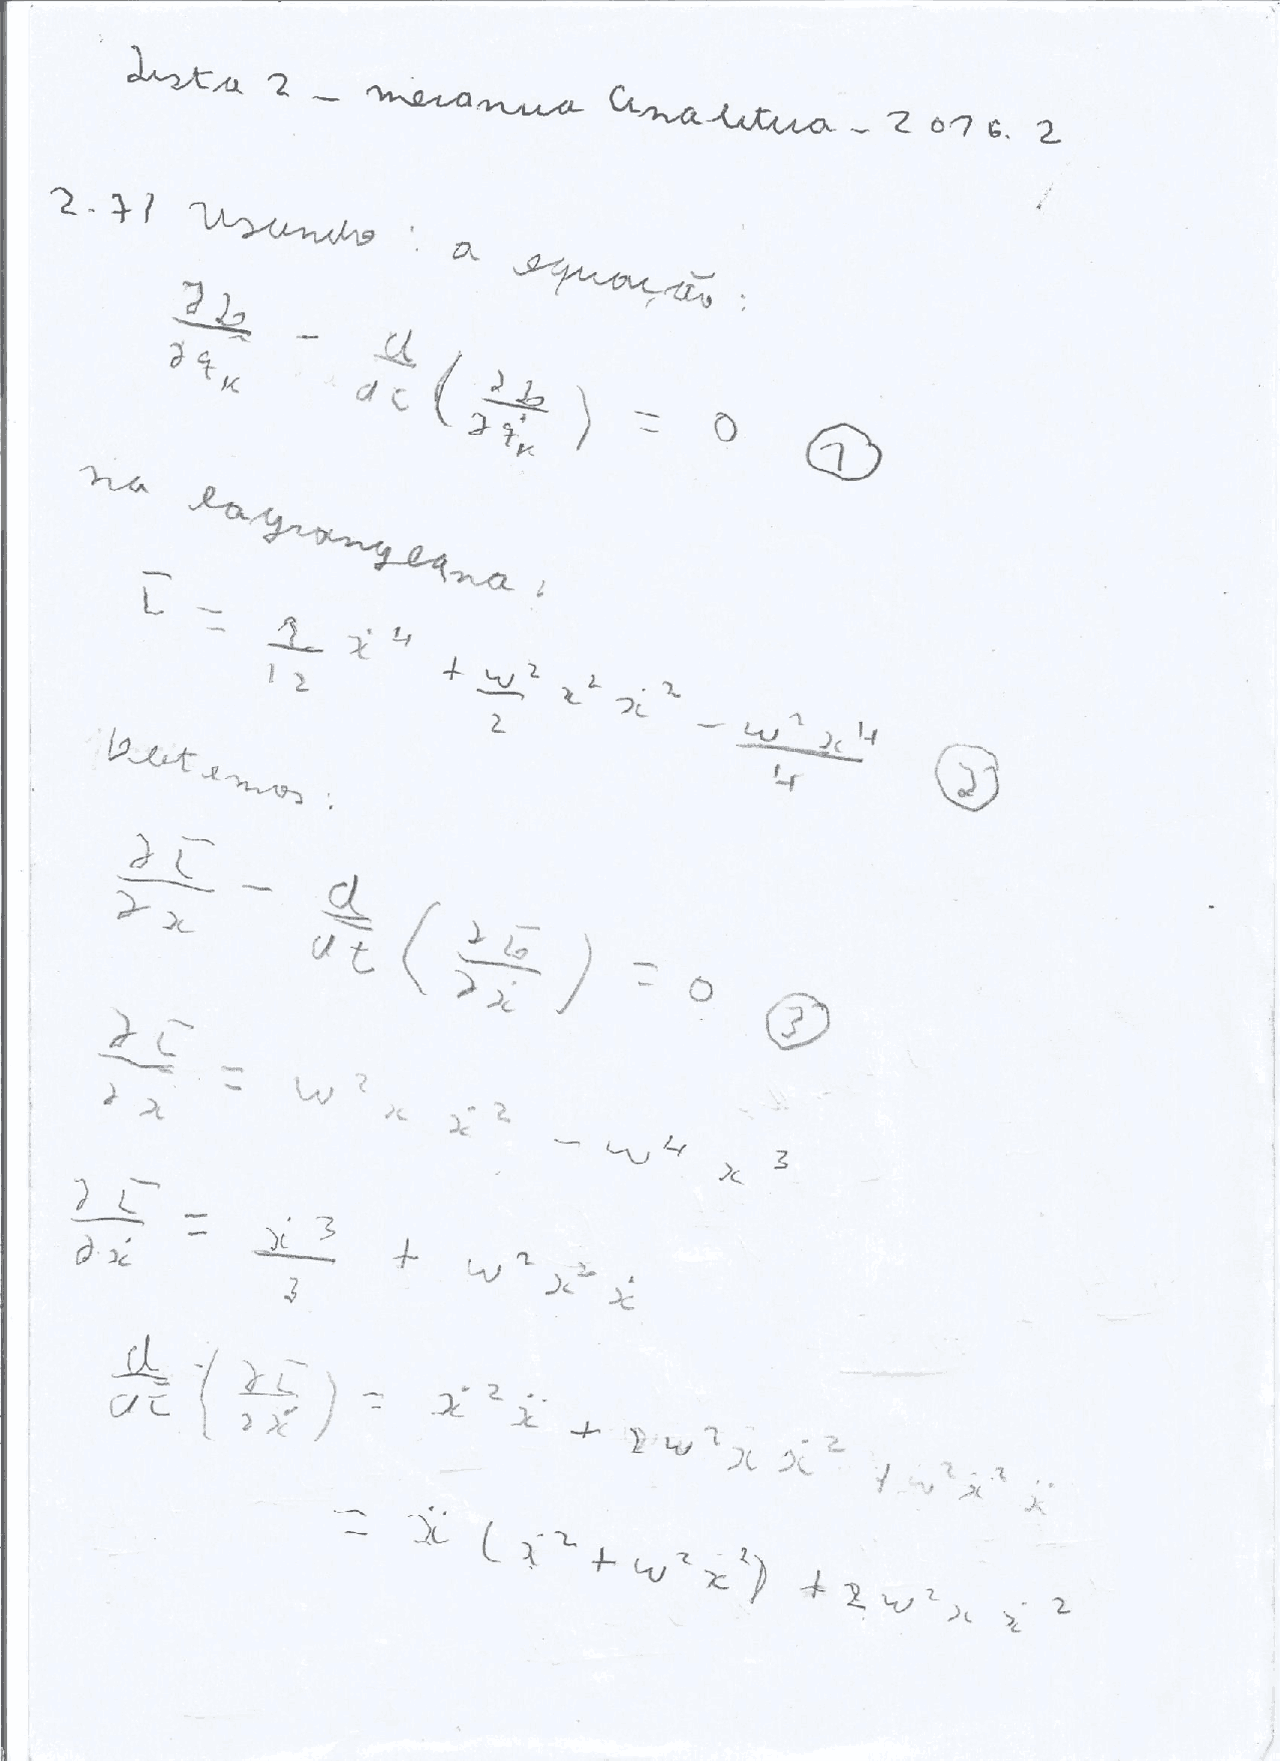 Lista 2 - mecanica Analitica - 2016.2
2.7) Usando: a equação:
∂L/∂q_k - d/dt (∂L/∂q̇_k) = 0 (1)
na lagrangeana:
L̄ = 1/12 ẋ⁴ + w²/2 x² ẋ² - w² x⁴/4 (2)
Obtemos:
∂L̄/∂x - d/dt (∂L̄/∂ẋ) = 0 (3)
∂L̄/∂x = w² x ẋ² - w⁴ x³
∂L̄/∂ẋ = ẋ³/3 + w² x² ẋ
d/dt (∂L̄/∂ẋ) = ẋ² ẍ + 2 w² x ẋ² + w² x² ẍ
= ẍ (ẋ² + w² x²) + 2 w² x ẋ²